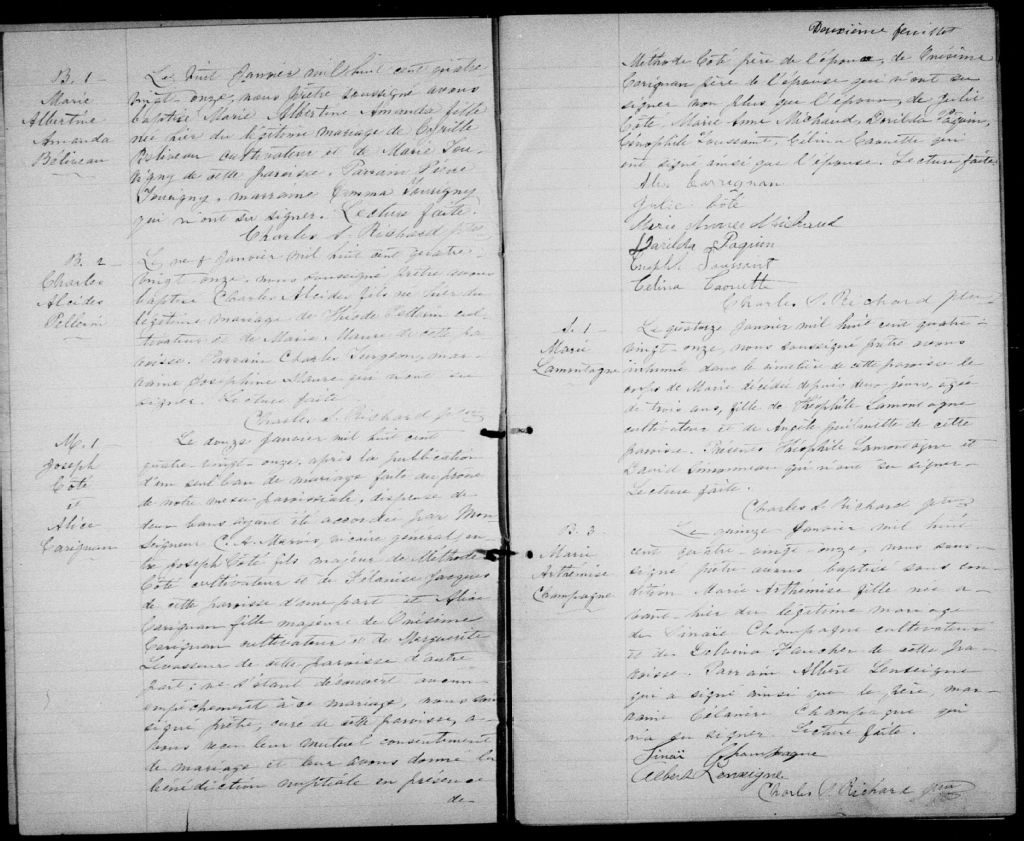 B. 1
Marie
Albertine
Amanda
Béliveau
Le huit Janvier mil huit cent quatre-
vingt onze, nous prêtre soussigné avons
baptisé Marie Albertine Amanda fille
née hier du légitime mariage de
Béliveau cultivateur et de Marie Tou-
vigny de cette paroisse. Parrain
Tourigny, marraine Emma Tourigny
qui n'ont su signer. Lecture faite.
Charles S. Richard ptre
B. 2
Charles
Alcides
Pellerin
Le neuf Janvier mil huit cent quatre-
vingt onze, nous soussigné prêtre avons
baptisé Charles Alcides fils né hier du
légitime mariage de Pellerin cul-
tivateur et de Marie de cette pa-
roisse. Parrain Charles Turgeon, mar-
raine Josephine qui n'ont su
signer. Lecture faite
Charles S. Richard ptre
M. 1
Joseph
Côté
et
Alice
Carignan
Le douze Janvier mil huit cent
quatre-vingt-onze, après la publication
d'un seul ban de mariage faite au prône
de notre messe paroissiale, dispense de
deux bans ayant été accordée par Mon-
seigneur C. A. Marois, vicaire général, en-
tre Joseph Côté fils majeur de Méthode
Côté cultivateur et de Jacques
de cette paroisse d'une part et Alice
Carignan fille majeure de Onésime
Carignan cultivateur et de Marguerite
Levasseur de cette paroisse d'autre
part; ne s'étant découvert aucun
empêchement à ce mariage, nous sous-
signé prêtre, curé de cette paroisse, a-
vons reçu leur mutuel consentement
de mariage et leur avons donné la
bénédiction nuptiale en présence
de
Deuxième feuillet
Méthode Côté père de l'époux, de Onésime
Carignan père de l'épouse qui n'ont su
signer non plus que l'époux, de Julie
Côté, Marie Anne Michaud, Dorilda Paquin,
Toussaint, Célina Caouette qui
ont signé ainsi que l'épouse. Lecture faite
Alice Carrignan
Julie Côté
Marie Michaud
Darilda Paquin
Toussaint
Celina Caouette
Charles S. Richard ptre
S. 1
Marie
Lamontagne
Le quatorze Janvier mil huit cent quatre-
vingt onze, nous soussigné prêtre avons
inhumé dans le cimetière de cette paroisse le
corps de Marie décédée depuis deux jours, agée
de trois ans, fille de Théophile Lamontagne
cultivateur et de Angèle Guilmette de cette
paroisse. Présents Théophile Lamontagne et
David Simonneau qui n'ont su signer.
Lecture faite.
Charles S. Richard ptre
B. 3
Marie
Arthémise
Champagne
Le quinze Janvier mil huit
cent quatre-vingt-onze, nous sous-
signé prêtre avons baptisé sous con-
dition Marie Arthémise fille née a-
vant-hier du légitime mariage
de Sinaï Champagne cultivateur
et de Faucher de cette pa-
roisse. Parrain Albert Lenseigne
qui a signé ainsi que le père mar-
raine Champagne qui
n'a su signer. Lecture faite.
Sinaï Champagne
Albert Lenseigne
Charles S. Richard ptre